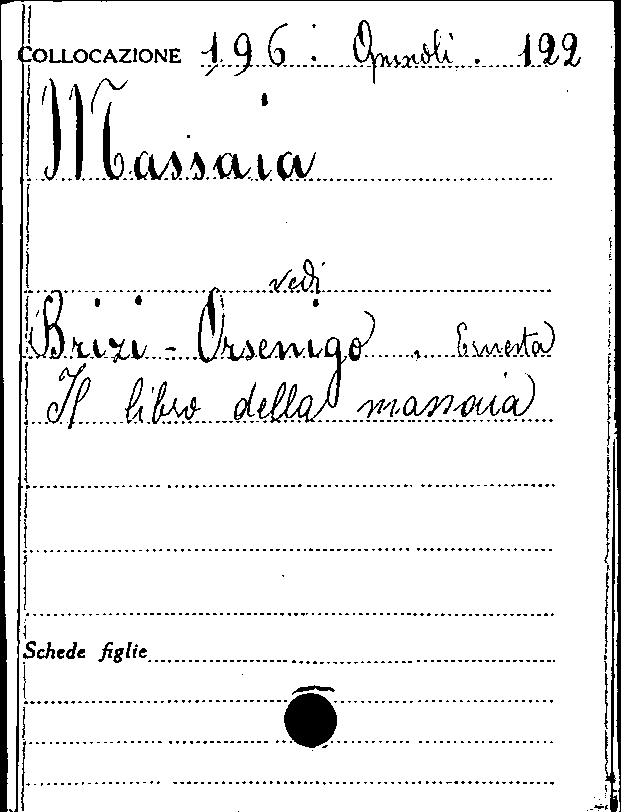 COLLOCAZIONE 196 : Opuscoli . 122
Massaia
vedi
Brizi - Orsenigo , Ernesta
Il libro della massaia
Schede figlie